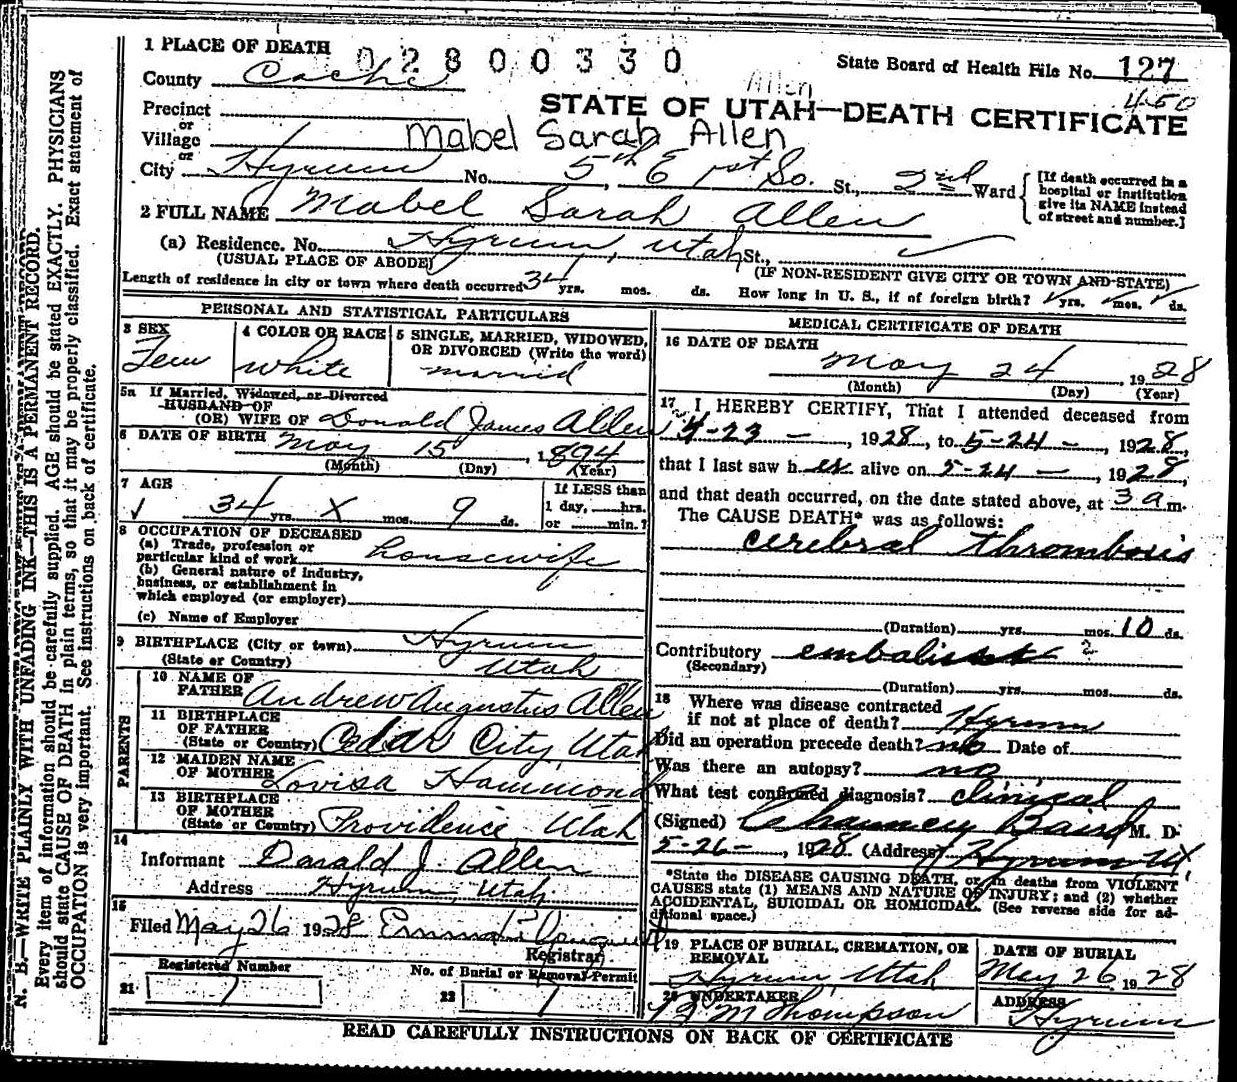 1 PLACE OF DEATH
02800330
State Board of Health File No. 127
County Cache
Allen
450
STATE OF UTAH—DEATH CERTIFICATE
Precinct
or
Village
Mabel Sarah Allen
or
City Hyrum No. 5th E 1st So. St., 2nd Ward
[If death occurred in a hospital or institution give its NAME instead of street and number.]
2 FULL NAME Mabel Sarah Allen
(a) Residence. No. Hyrum, Utah St.,
(USUAL PLACE OF ABODE)
(IF NON-RESIDENT GIVE CITY OR TOWN AND STATE)
Length of residence in city or town where death occurred 34 yrs. mos. ds. How long in U. S., if of foreign birth? yrs. mos. ds.
PERSONAL AND STATISTICAL PARTICULARS
3 SEX
Fem
4 COLOR OR RACE
white
5 SINGLE, MARRIED, WIDOWED,
OR DIVORCED (Write the word)
married
5a If Married, Widowed, or Divorced
HUSBAND OF
(OR) WIFE OF Donald James Allen
6 DATE OF BIRTH May 15, 1894
(Month) (Day) (Year)
7 AGE
34 yrs. X mos. 9 ds.
If LESS than
1 day, hrs.
or min.?
8 OCCUPATION OF DECEASED
(a) Trade, profession or
particular kind of work housewife
(b) General nature of industry,
business, or establishment in
which employed (or employer)
(c) Name of Employer
9 BIRTHPLACE (City or town) Hyrum
(State or Country) Utah
PARENTS
10 NAME OF
FATHER Andrew Augustus Allen
11 BIRTHPLACE
OF FATHER
(State or Country) Cedar City, Utah
12 MAIDEN NAME
OF MOTHER Lovisa Hammond
13 BIRTHPLACE
OF MOTHER
(State or Country) Providence, Utah
14
Informant Donald J. Allen
Address Hyrum, Utah
15
Filed May 26 1928
Registrar
Registered Number
21 7
No. of Burial or Removal Permit
22 7
MEDICAL CERTIFICATE OF DEATH
16 DATE OF DEATH
May 24, 1928
(Month) (Day) (Year)
17 I HEREBY CERTIFY, That I attended deceased from
4-23-, 1928, to 5-24-, 1928,
that I last saw her alive on 5-24-, 1928,
and that death occurred, on the date stated above, at 3 a m.
The CAUSE DEATH* was as follows:
cerebral thrombosis
(Duration) yrs. mos. 10 ds.
Contributory
(Secondary)
(Duration) yrs. mos. ds.
18 Where was disease contracted
if not at place of death? Hyrum
Did an operation precede death? no Date of
Was there an autopsy? no
What test confirmed diagnosis? clinical
(Signed) Chauncey Baird M. D.
5-26-, 1928 (Address) Hyrum Ut.
*State the DISEASE CAUSING DEATH, or, in deaths from VIOLENT
CAUSES state (1) MEANS AND NATURE OF INJURY; and (2) whether
ACCIDENTAL, SUICIDAL OR HOMICIDAL. (See reverse side for ad-
ditional space.)
19 PLACE OF BURIAL, CREMATION, OR
REMOVAL
Hyrum, Utah
DATE OF BURIAL
May 26, 1928
20 UNDERTAKER
Thompson
ADDRESS
Hyrum
READ CAREFULLY INSTRUCTIONS ON BACK OF CERTIFICATE
N. B.—WRITE PLAINLY WITH UNFADING INK—THIS IS A PERMANENT RECORD.
Every item of information should be carefully supplied. AGE should be stated EXACTLY. PHYSICIANS
should state CAUSE OF DEATH in plain terms, so that it may be properly classified. Exact statement of
OCCUPATION is very important. See instructions on back of certificate.